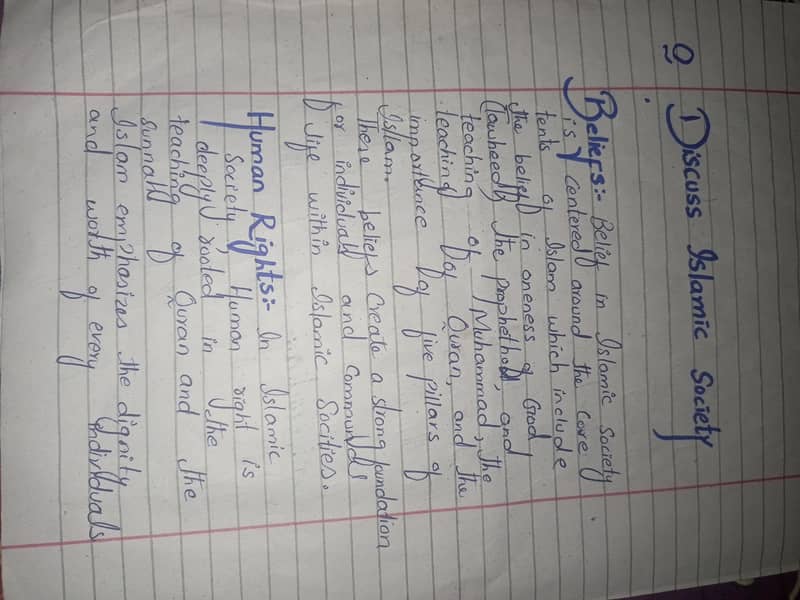 Q Discuss Islamic Society
Beliefs:- Belief in Islamic Society
is centered around the core
tents of Islam which include
the belief in oneness of God
(Tawheed) the Prophethod, and
teaching of Muhammad, the
teaching of Quran, and the
importence of five pillars of
Islam.
These beliefs create a strong foundation
for individuals and
of life within Islamic Socities.
Human Rights:- In Islamic
Society Human right is
deeply rooted in the
teaching of Quran and the
Sunnah
Islam emphasizes the dignity
and worth of every individuals